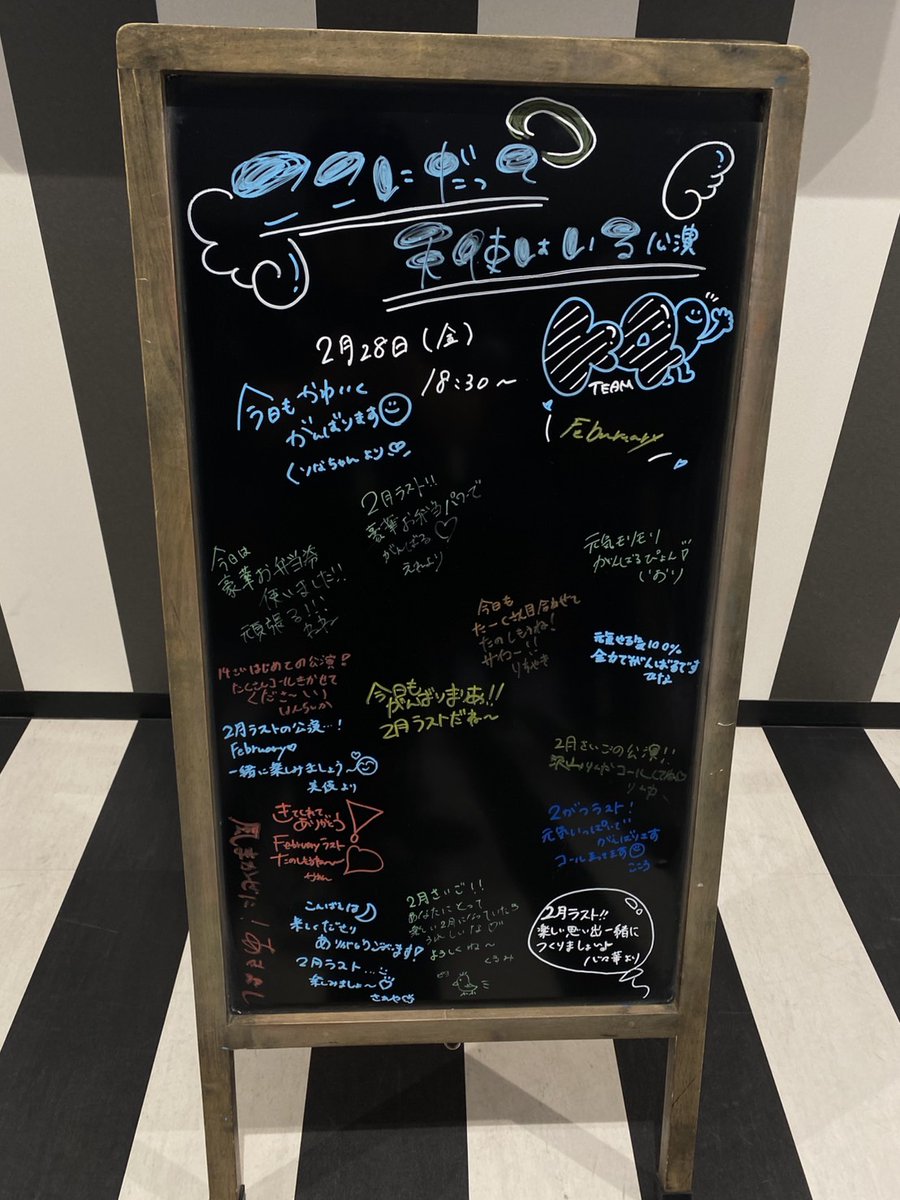 ここにだって
天使はいる公演
2月28日(金)
18:30〜
TEAM
February
今日もかわいく
がんばります
くりなちゃんより
2月ラスト!!
豪華お弁当パワーで
がんばる♡
えれより
今日は
豪華お弁当券
使いました!!
頑張る!!!
元気モリモリ
がんばるぴょん♡
しおり
今日も
たーくさん目合わせて
たのしもうね!
100%
全力でがんばるです
ひな
14さいはじめての公演!
たくさんコールきかせて
くださーい)
今日もがんばりまりあ!!
2月ラストだね〜
2月ラストの公演…!
February♡
一緒に楽しみましょう〜
美優より
2月さいごの公演!!
2がつラスト!
元気いっぱいで
がんばります
コールまってます
こころ
きてくれて
ありがとう
Februaryラスト
たのしもうね〜
風まかせだ!
こんばんは
楽しくださり
ありがとうございます♡
2月ラスト…
楽しみましょ〜
さあや
2月さいご!!
あなたにとって
楽しい2月になっていたら
うれしいな♡
よろしくね〜
くるみ
2月ラスト!!
楽しい思い出一緒に
つくりましょいよ
心華より